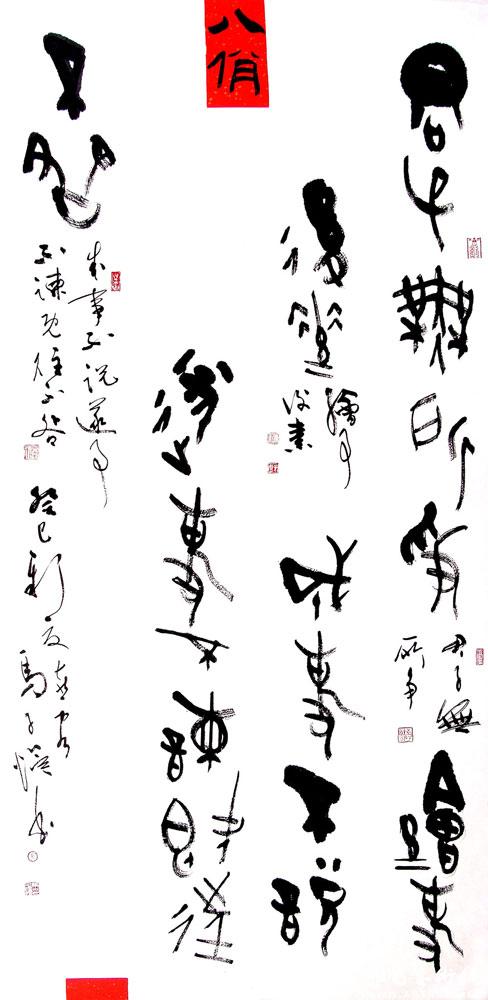 八佾
君子無所爭
君子無
所爭
繪事
後素
繪事
後素
成事不說
遂事不諫既往
不咎
成事不說遂事
不諫既往不咎
癸巳
馬子